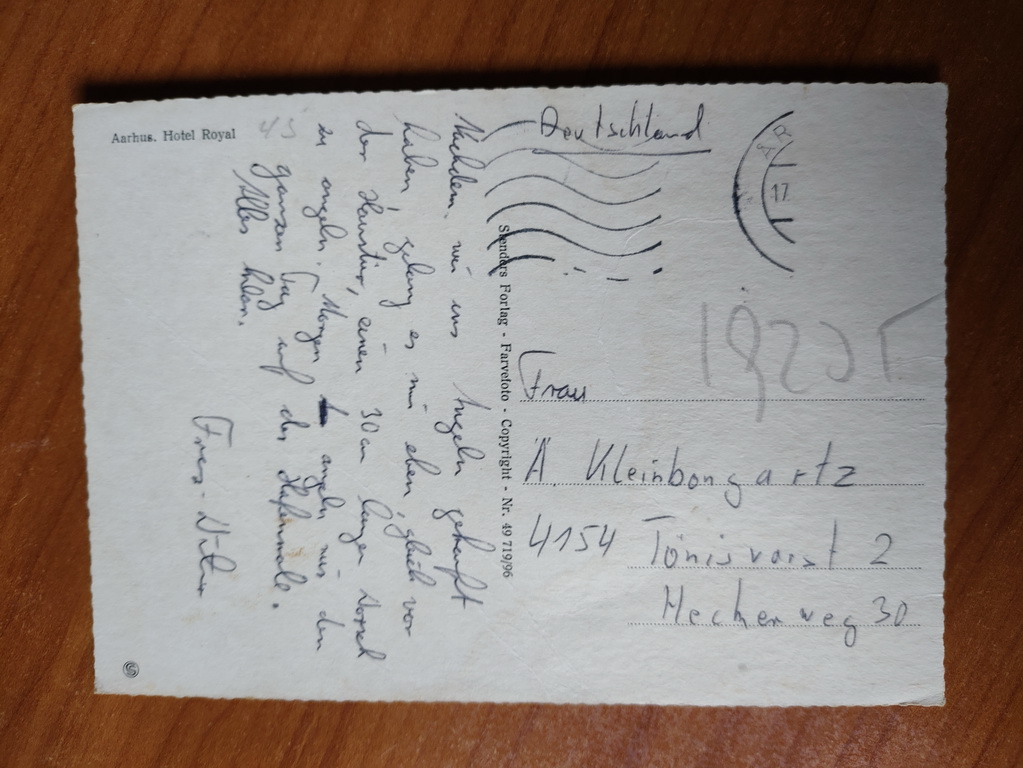 Aarhus. Hotel Royal
45
Nachdem wir uns Angeln gekauft
haben, gelang es mir eben, gleich vor
der Haustür, einen 30 cm langen Dorsch
zu angeln. Morgen angeln wir den
ganzen Tag auf der Hafenmole.
Alles klar.
Stenders Forlag - Farvefoto - Copyright - Nr. 49 719/96
Deutschland
17
Frau
A. Kleinbongartz
4154 Tönisvorst 2
Heckerweg 30